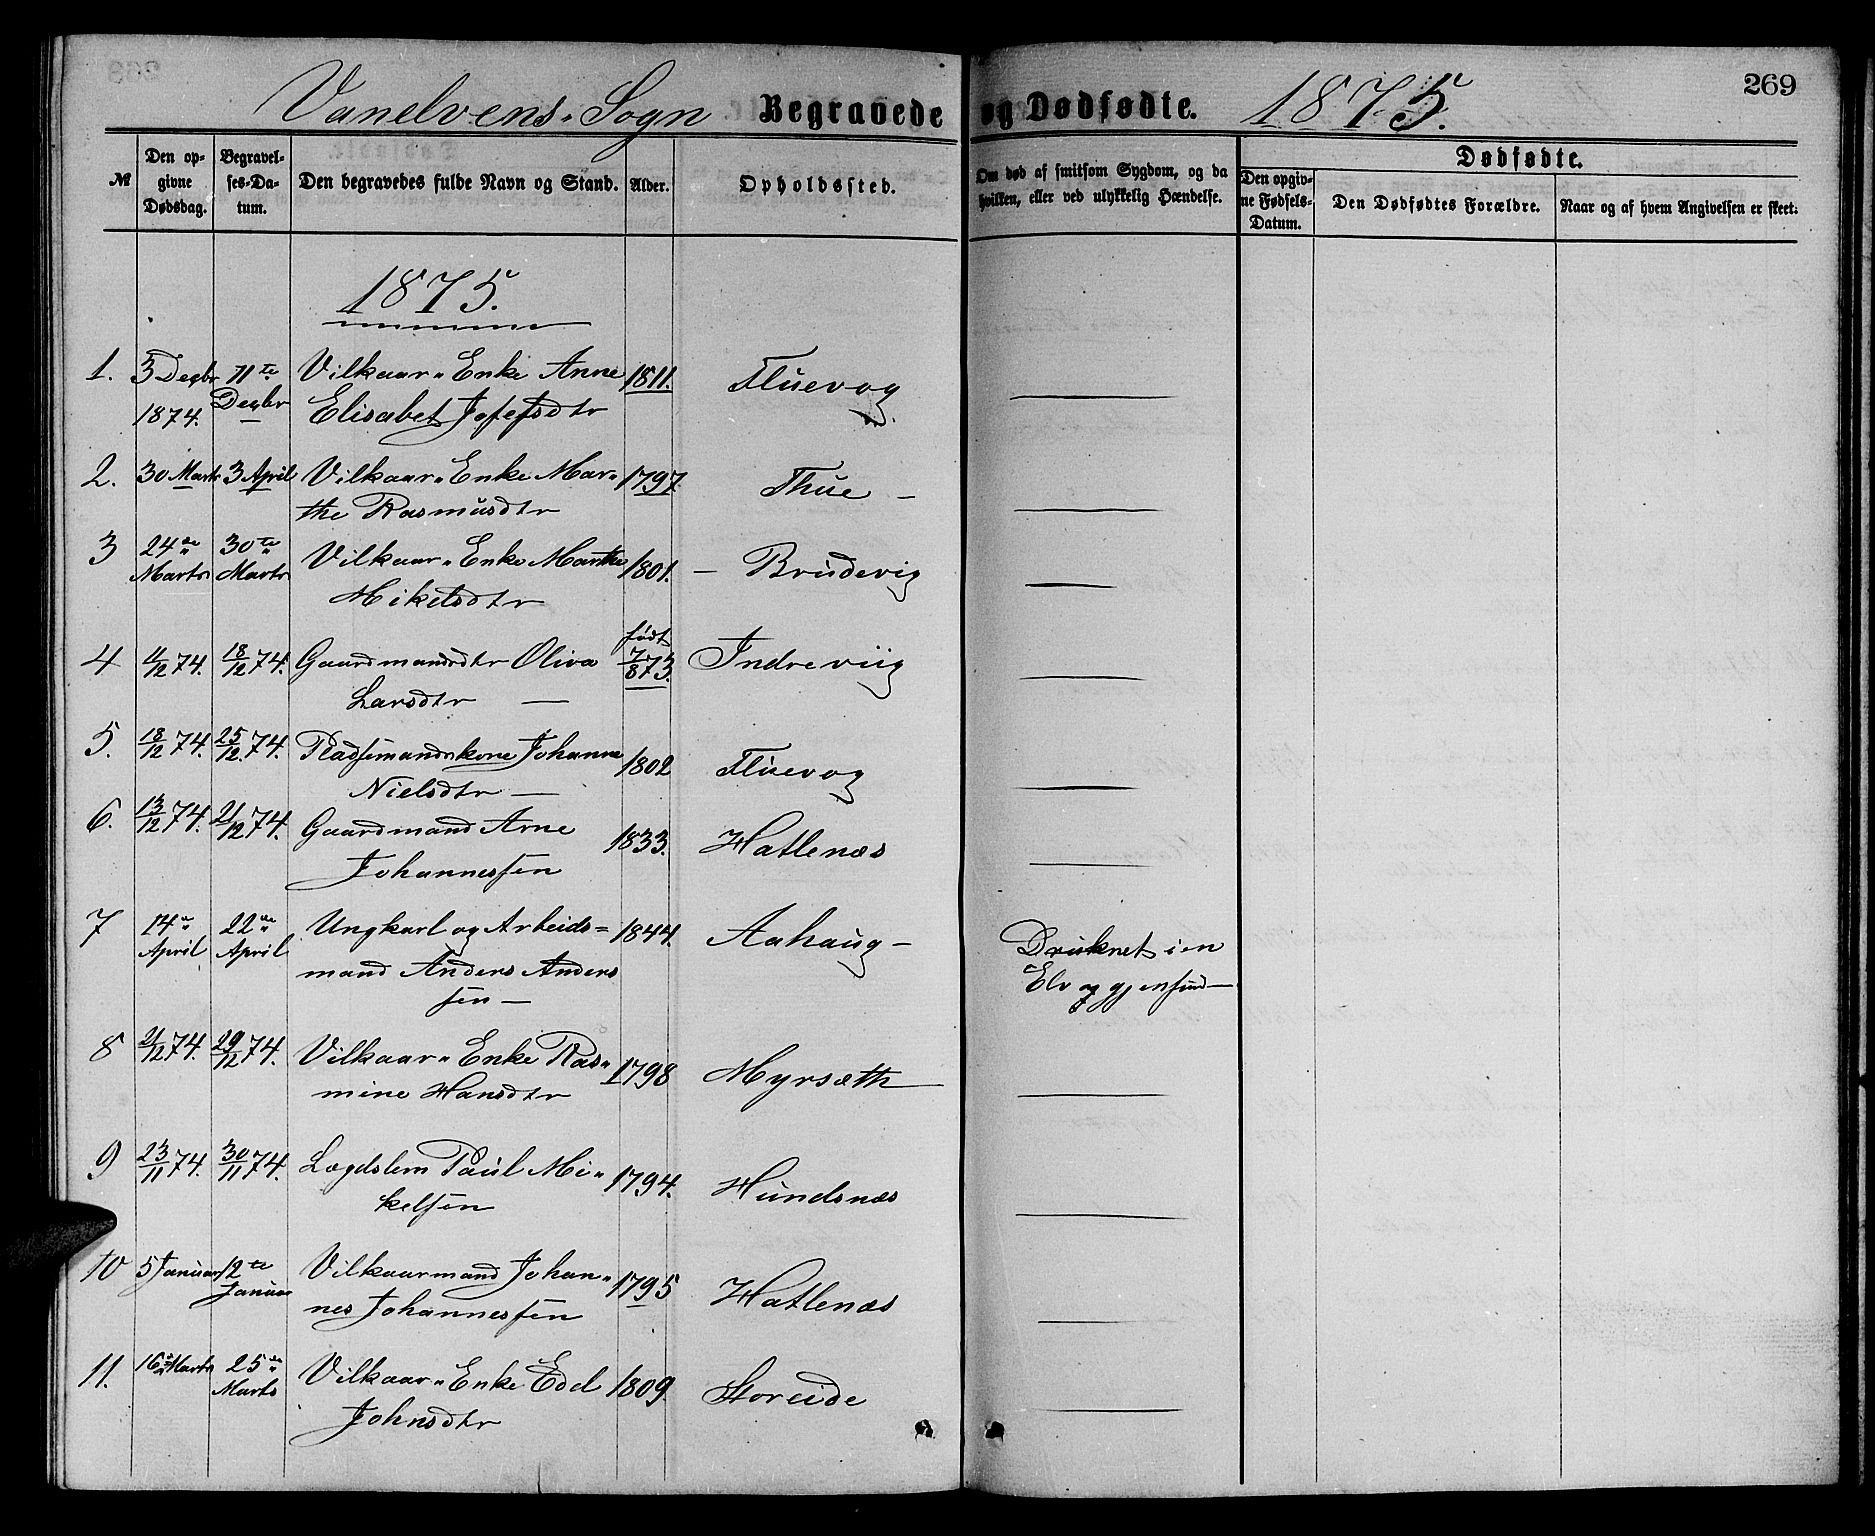 269
Vanelvens Sogn Begravede og Dødfødte. 1875.
№ Den opgivne Dødsdag. Begravelses-Datum. Den begravedes fulde Navn og Stand. Alder. Opholdssted. Om død af smitsom Sygdom, og da hvilken, eller ved ulykkelig Hændelse. Dødfødte. Den opgivne Fødsels-Datum. Den Dødfødtes Forældre. Naar og af hvem Angivelsen er skeet.
1875.
1. 3 Decbr 11te Vilkaar„ Enke Anne 1811. Fluevog —
1874. Decbr Elisabet Josefsdtr
2. 30 Marts 3 April Vilkaar„ Enke Mar„ 1797. Thue — —
the Rasmusdtr
3 24de 30te Vilkaar„ Enke Marthe 1801. — Brudevig —
Marts Marts Mikelsdtr
4 11/12 74. 18/12 74. Gaardmandsdtr Oliva født 7/8 73. Indreviig —
Larsdtr —
5. 18/12 74. 25/12 74. Pladsemandskone Johanne 1802 Fluevog —
Nielsdtr —
6. 13/12 74. 21/12 74. Gaardmand Arne 1833. Hatlenæs —
Johannessen
7 14de 22de Ungkarl og Arbeids= 1844. Aahaug — Druknet i en
April April mand Anders Anders Elv og gjenfund—
sen —
8 21/12 74. 29/12 74. Vilkaar„ Enke Ras„ 1798 Myrsæth —
mine Hansdtr
9 23/11 74. 30/11 74. Lægdslem Paul Mi„ 1794. Hundsnæs —
kelsen
10 5 Januar 12te Vilkaarmand Johan„ 1795 Hatlenæs —
Januar nes Johannessen
11. 16de Marts 25de Vilkaar„ Enke Edel 1809. Storeide —
Marts Johnsdtr